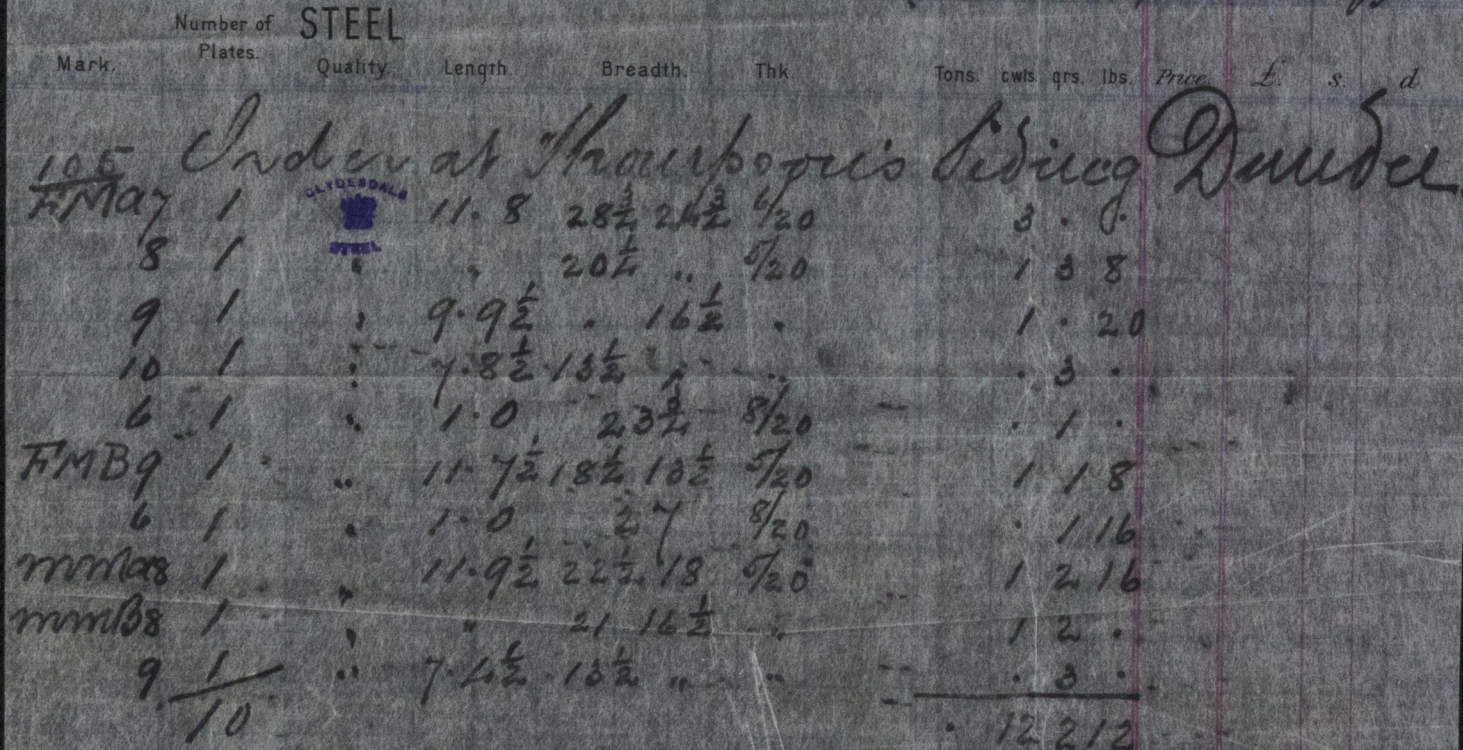 Number of Plates. STEEL
Mark. Quality Length. Breadth. Thk. Tons. cwts. qrs. lbs. Price £. s. d
105 Order at Thompson's Siding Dundee
FMa7 1 CLYDESDALE STEEL 11. 8 28½ 6/20 3 . 0.
8 1 " " 20½ " 5/20 1 3 8
9 1 " 9.9½ " 16½ " 1 . 20
10 1 " 7.8½ 13½ " " . 3 .
6 1 " 1.0 8/20 . 1 .
FMB9 1 " 11.7½ 18½ 13½ 5/20 1 1 8
6 1 " 1.0 27 8/20 . 1 16
MMa8 1 " 11.9½ 22½ 18 5/20 1 2 16
MMB8 1 " " 21 16½ " 1 2 .
9 1 " 7.4½ 13½ " " . 3 .
10 . 12 2 12